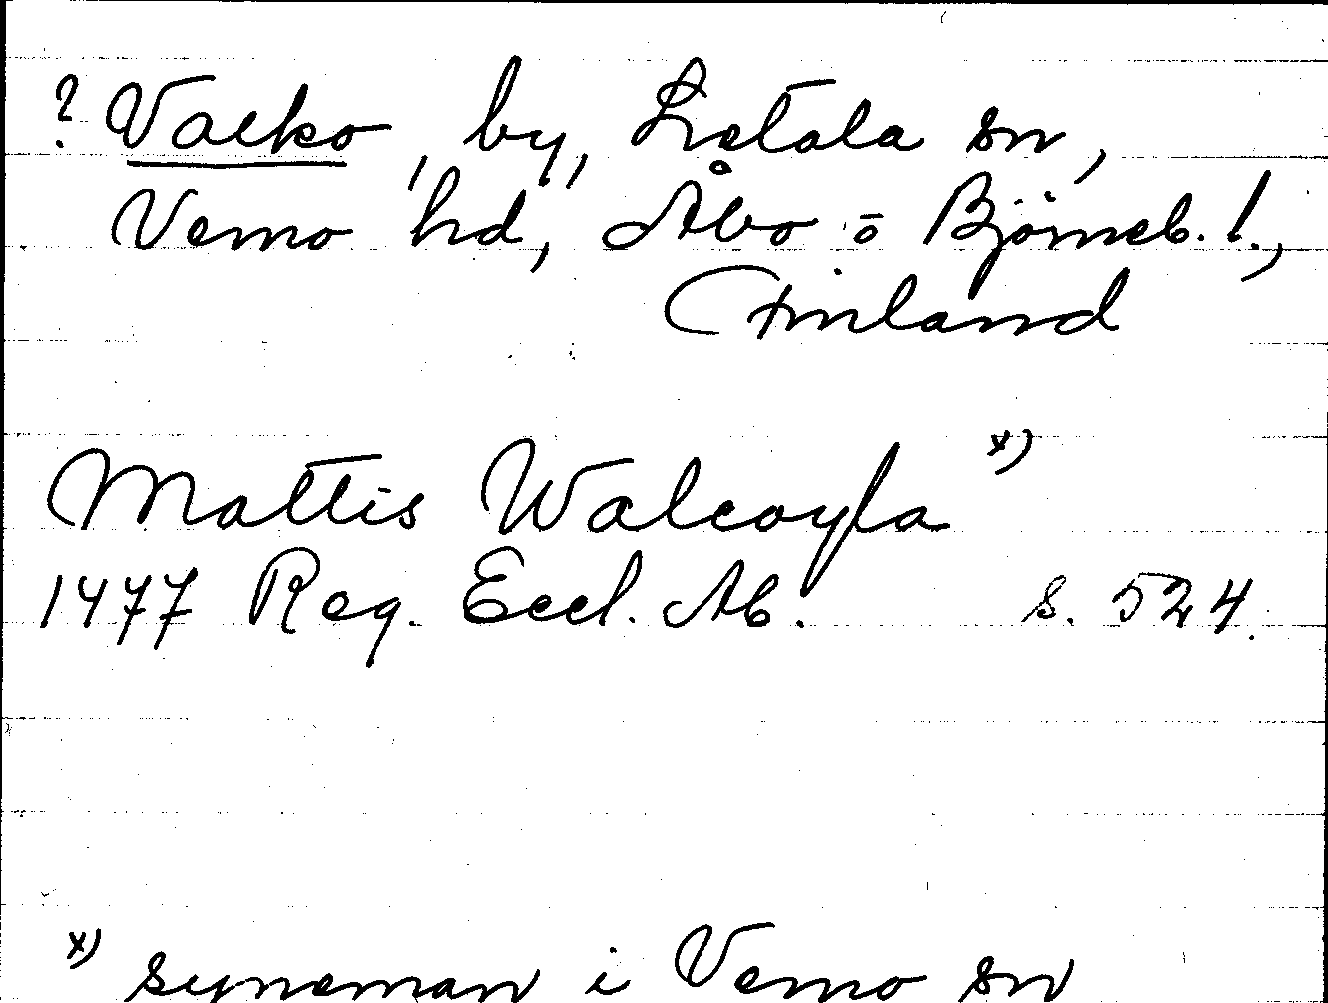 ? Valko, by, Letala sn,
Vemo hd, Åbo o Björneb. l.,
Finland
Mattis Walcoyla x)
1477 Reg. Eccl. Ab. s. 524.
x) syneman i Vemo sn